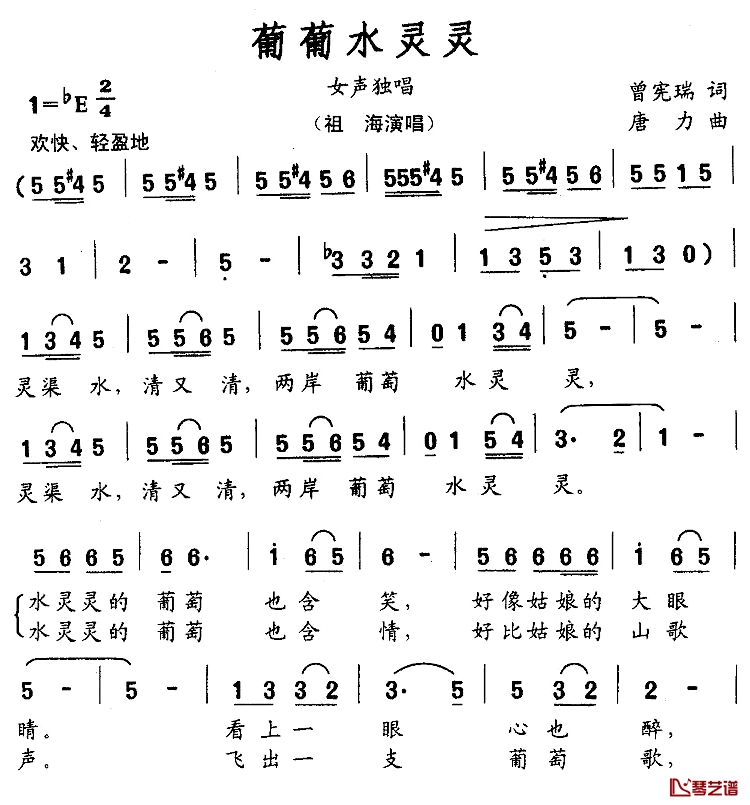 葡萄水灵灵
女声独唱
(祖 海演唱)
曾宪瑞 词
唐 力 曲
1=♭E 2/4
欢快、轻盈地
(5 5♯4 5 | 5 5♯4 5 | 5 5♯4 5 6 | 555♯4 5 | 5 5♯4 5 6 | 5 5 1 5 |
3 1 | 2 - | 5 - | ♭3 3 2 1 | 1 3 5 3 | 1 3 0) |
1 3 4 5 | 5 5 6 5 | 5 5 6 5 4 | 0 1 3 4 | 5 - | 5 - |
灵渠 水,清又 清,两岸 葡萄 水灵 灵,
1 3 4 5 | 5 5 6 5 | 5 5 6 5 4 | 0 1 5 4 | 3· 2 | 1 - |
灵渠 水,清又 清,两岸 葡萄 水灵 灵。
5 6 6 5 | 6 6· | i 6 5 | 6 - | 5 6 6 6 6 | i 6 5 |
水灵灵的 葡萄 也含 笑, 好像姑娘的 大眼
水灵灵的 葡萄 也含 情, 好比姑娘的 山歌
5 - | 5 - | 1 3 3 2 | 3· 5 | 5 3 2 | 2 - |
睛。 看上一 眼 心也 醉,
声。 飞出一 支 葡萄 歌,
琴艺谱